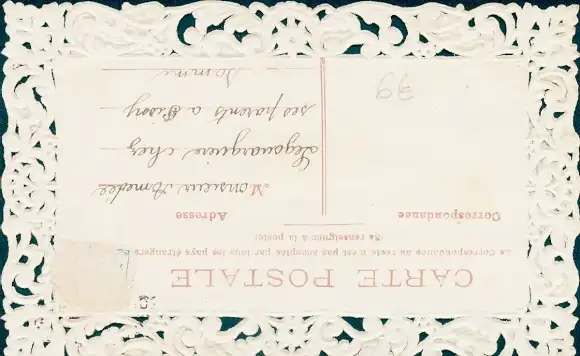 CARTE POSTALE
La Correspondance au recto n'est pas acceptée par tous les pays étrangers
(Se renseigner à la poste)
Correspondance
Adresse
Monsieur Amedée
chez
ses parents a
Somme